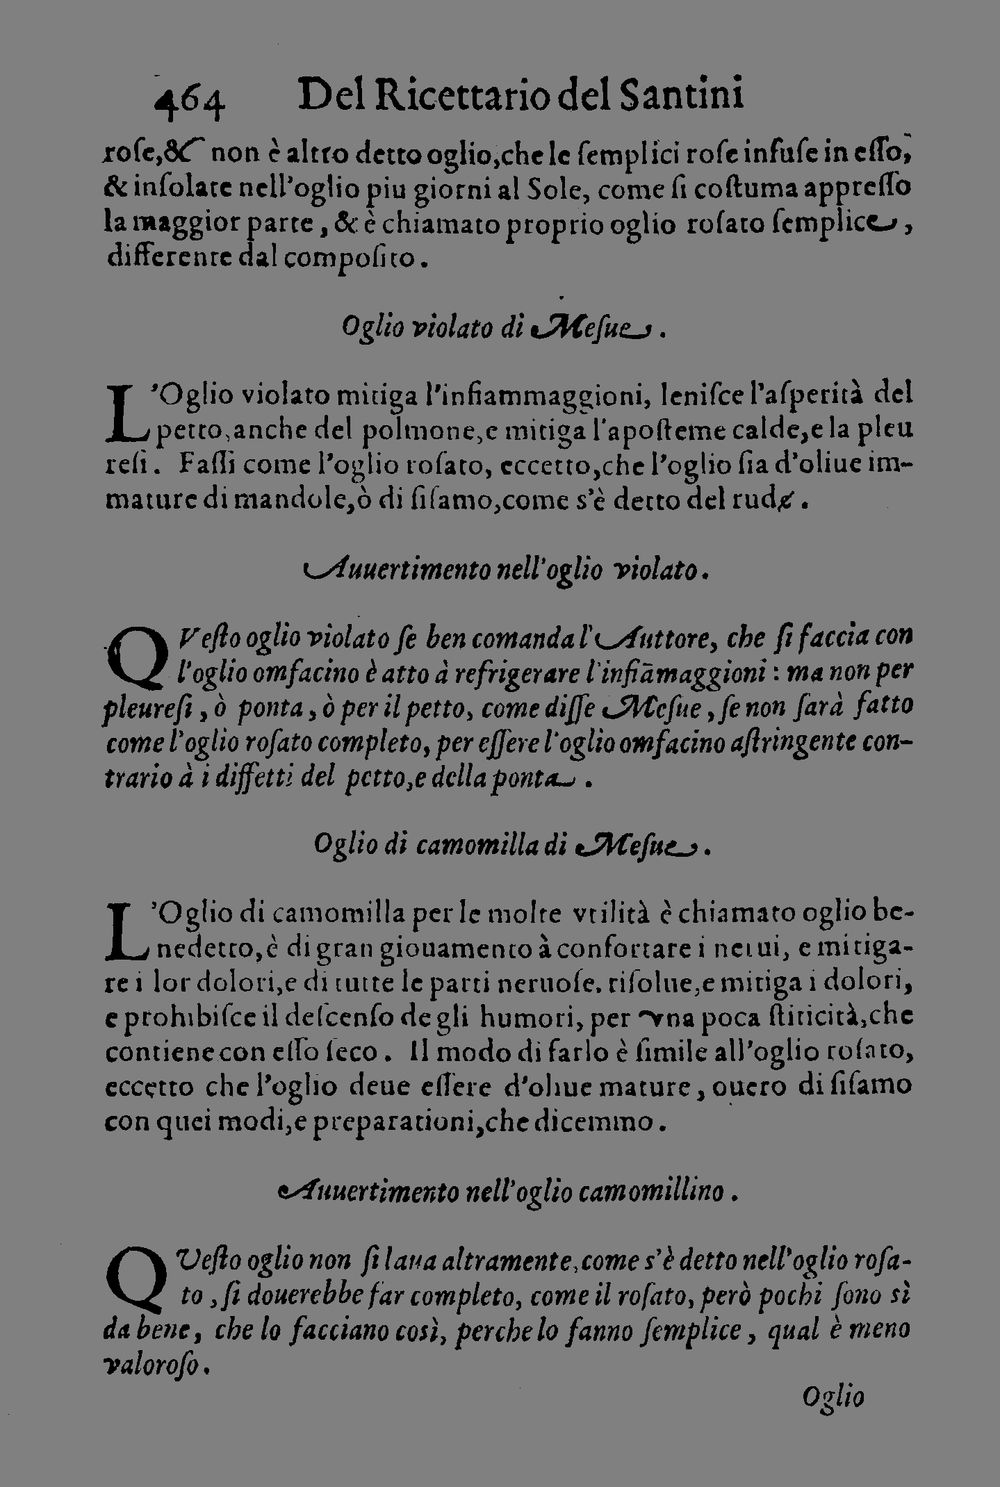 464 Del Ricettario del Santini
rose,& non è altro detto oglio,che le semplici rose infuse in esso,
& insolate nell'oglio piu giorni al Sole, come si costuma appresso
la maggior parte, & è chiamato proprio oglio rosato semplice,
differente dal composito.
Oglio violato di Mesue.
L'Oglio violato mitiga l'infiammaggioni, lenisce l'asperità del
petto,anche del polmone,e mitiga l'aposteme calde,e la pleu
resi. Fassi come l'oglio rosato, eccetto,che l'oglio sia d'oliue im-
mature di mandole,ò di sisamo,come s'è detto del rude.
Auuertimento nell'oglio violato.
QVesto oglio violato se ben comanda l'Auttore, che si faccia con
l'oglio omfacino è atto à refrigerare l'infiāmaggioni: ma non per
pleuresi, ò ponta, ò per il petto, come disse Mesue, se non sarà fatto
come l'oglio rosato completo, per essere l'oglio omfacino astringente con-
trario à i diffetti del petto,e della ponta.
Oglio di camomilla di Mesue.
L'Oglio di camomilla per le molte vtilità è chiamato oglio be-
nedetto,è di gran giouamento à confortare i nerui, e mitiga-
re i lor dolori,e di tutte le parti neruose. risolue,e mitiga i dolori,
e prohibisce il descenso degli humori, per vna poca stiticità,che
contiene con esso seco. Il modo di farlo è simile all'oglio rosato,
eccetto che l'oglio deue essere d'oliue mature, ouero di sisamo
con quei modi,e preparationi,che dicemmo.
Auuertimento nell'oglio camomillino.
QVesto oglio non si laua altramente,come s'è detto nell'oglio rosa-
to, si douerebbe far completo, come il rosato, però pochi sono sì
da bene, che lo facciano così, perche lo fanno semplice, qual è meno
valoroso.
Oglio